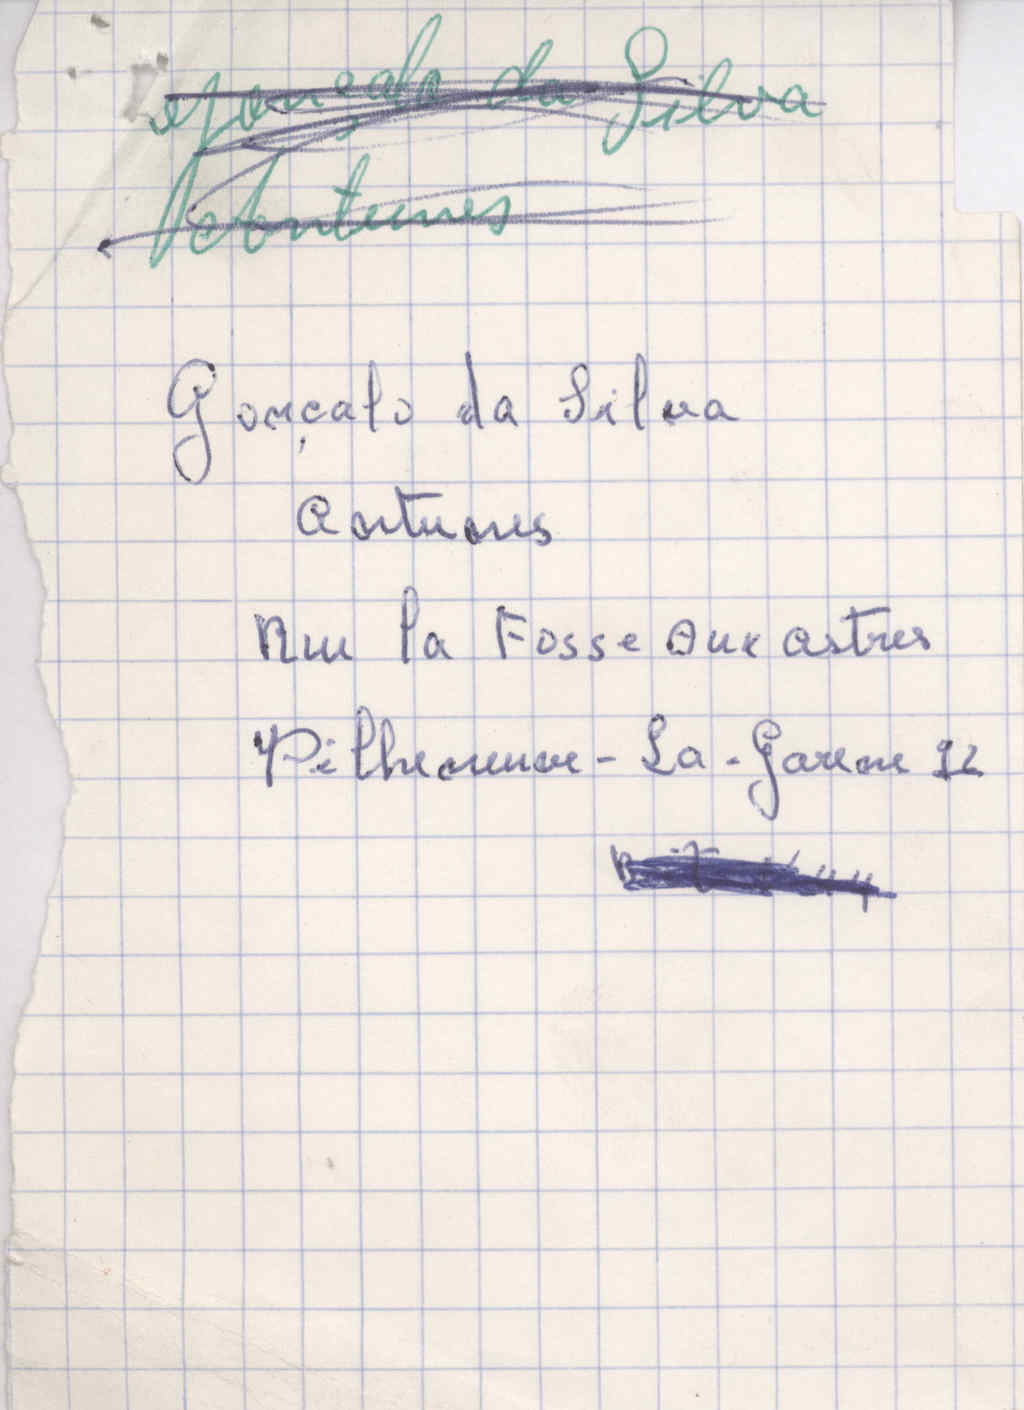 Gonçalo da Silva
Antunes
Gonçalo da Silva
Antunes
Rue la Fosse aux astres
Vilheneuve-La-Garene 92